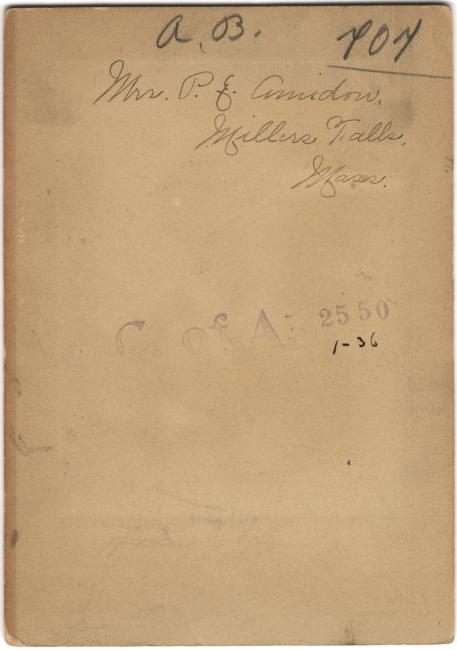 A. B. 404
Mrs. P. E. Amidon,
Millers Falls,
Mass.
C. of A. 2550
1-36